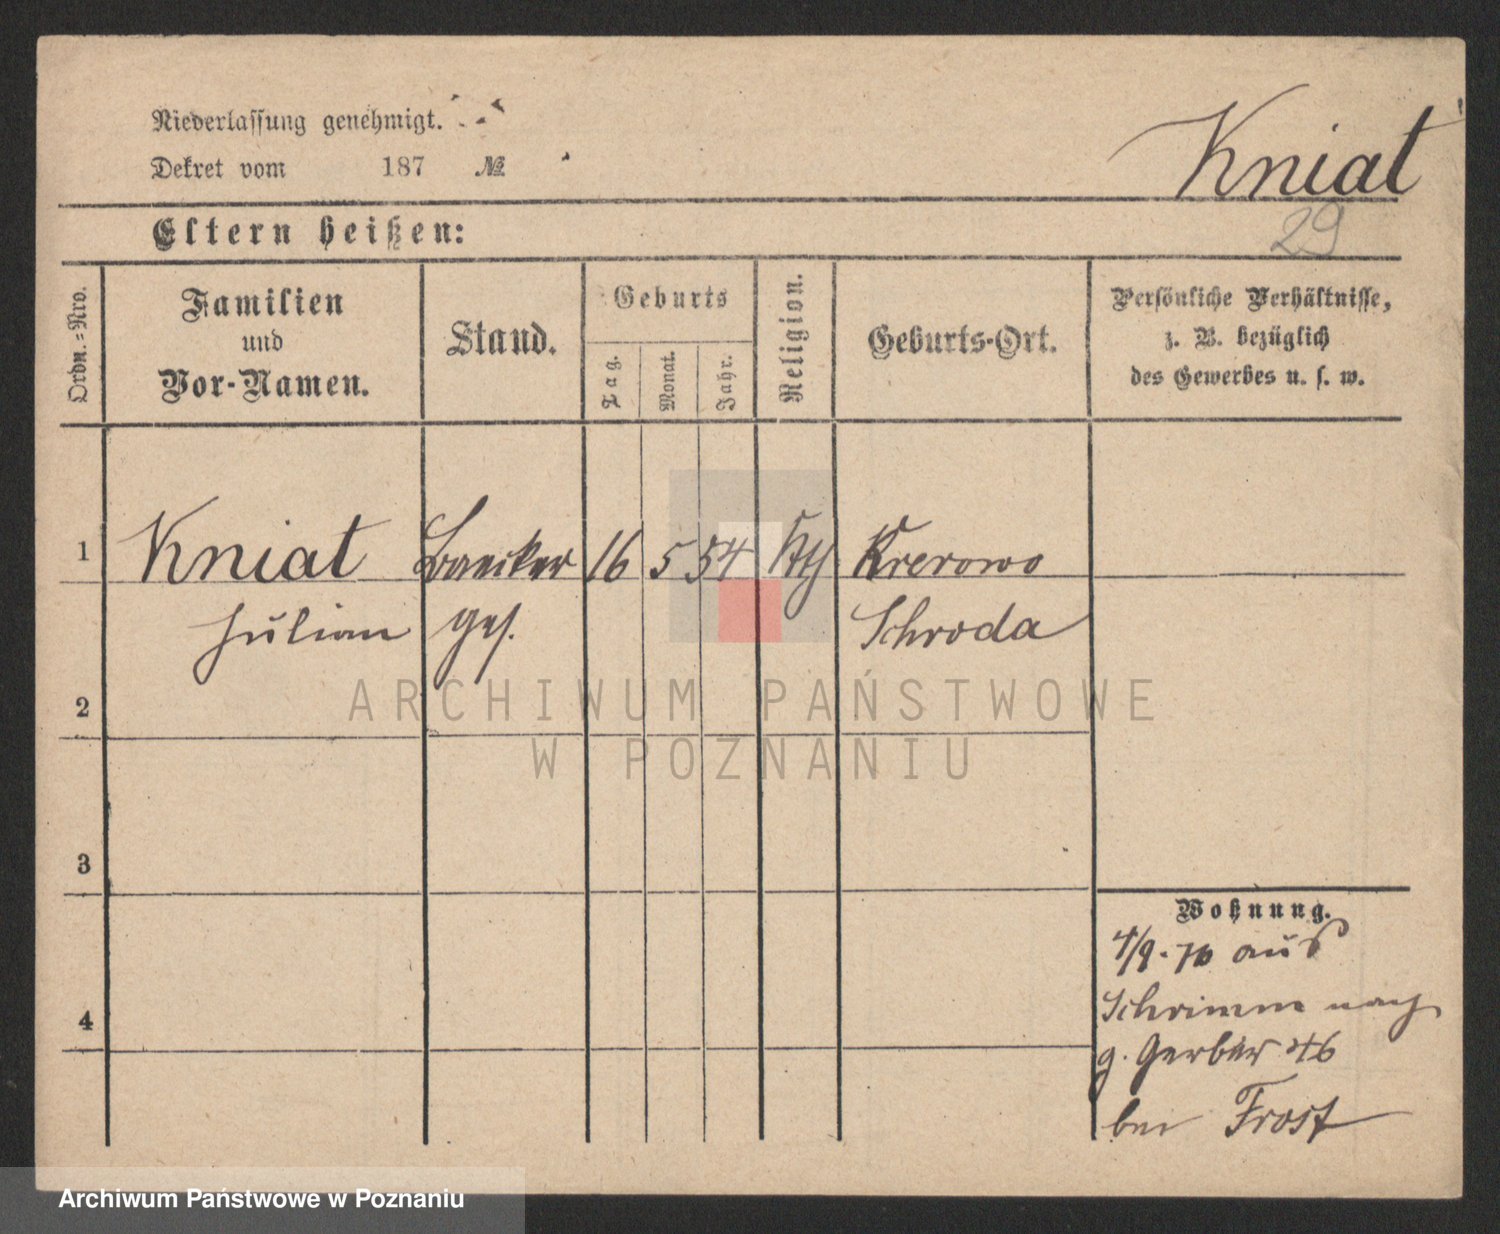 Niederlassung genehmigt.
Dekret vom 187 №
Kniat
29
Eltern heißen:
Ordn.=Nro.
Familien
und
Vor-Namen.
Stand.
Geburts
Tag.
Monat.
Jahr.
Religion.
Geburts-Ort.
Persönliche Verhältnisse,
z. B. bezüglich
des Gewerbes u. s. w.
1 Kniat Baecker 16 5 54 Kth Krerowo
Julian ges. Schroda
2
3
4
Wohnung.
4/9. 76 aus
Schrimm nach
g. Gerber 46
bei Frost
ARCHIWUM PAŃSTWOWE
W POZNANIU
Archiwum Państwowe w Poznaniu